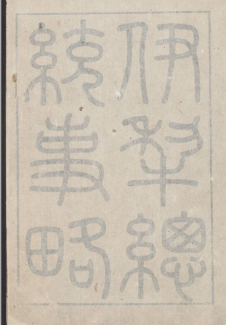 伊犂總
統事略